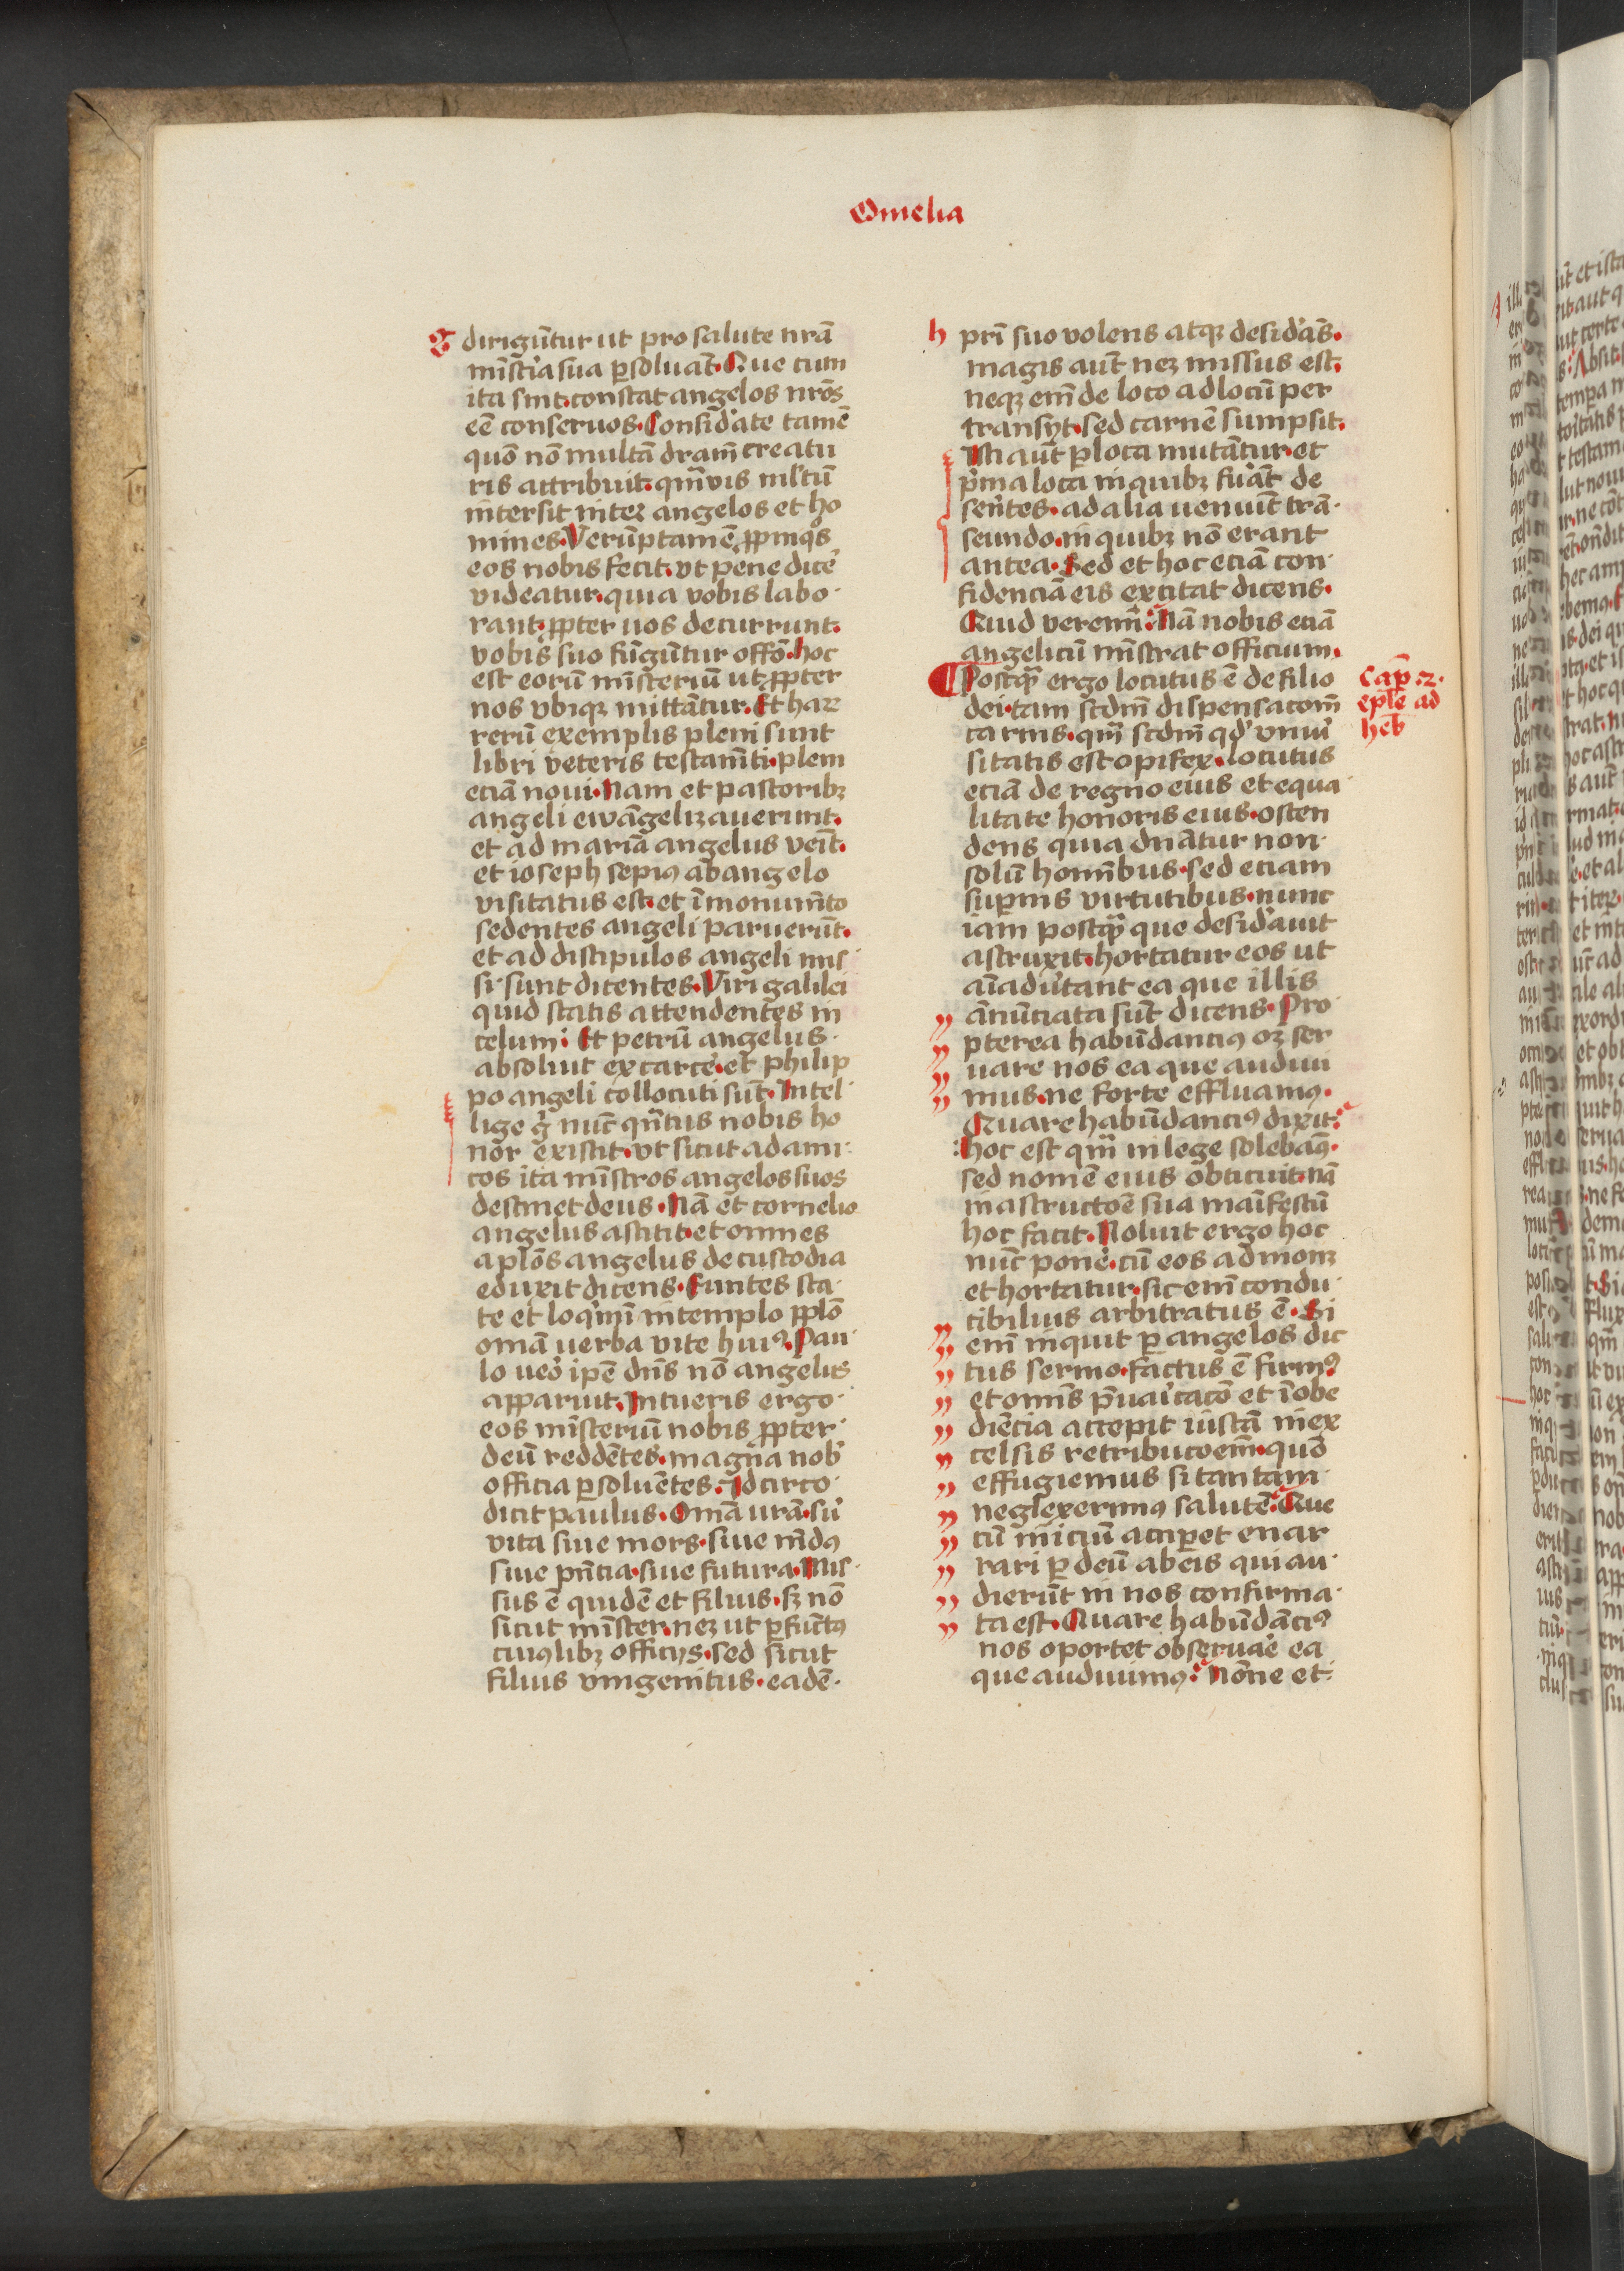 Omelia
g
dirigūtur ut pro salute nrā
mīsteria sua ꝑsoluāt. Que cum
ita sint. constat angelos nrōs
eē conseruos. Considerate tamē
quō nō multā dr̄am creatu
ris attribuit. qm̄vis ml̄tū
īntersit inter angelos et ho
mines. Verūptamē ꝓpinqs
eos nobis fecit. vt pene dicē
videatur. quia vobis labo
rant. ꝓpter uos decurrunt.
vobis suo fūgūtur offō. hoc
est eorū mīsteriū ut ꝓpter
nos vbiqꝫ mittātur. Et haꝝ
rerū exemplis pleni sunt
libri veteris testam̄ti. pleni
eciā noui. Nam et pastoribꝫ
angeli ewāgelizauerunt.
et ad mariā angelus veīt.
et ioseph sepiꝰ ab angelo
visitatus est. et ī monum̄to
sedentes angeli paruerūt.
et ad discipulos angeli mis
si sunt dicentes. Viri galilei
quid statis attendentes in
celum: Et petrū angelus
absoluit ex carcē. et philip
po angeli collocuti sūt. Intel
lige gͦ nūc qn̄tus nobis ho
nor existit. vt sicut ad ami
cos ita mīstros angelos suos
destinet deus. Nā et cornelio
angelus astitit. et omnes
aplōs angelus de custodia
eduxit dicens. Euntes sta
te et loqͥmī in templo ꝓplō
omīa uerba vite huiꝰ. Pau
lo ueͦ ipē dn̄s nō angelus
apparuit. Intueris ergo
eos mīsteriū nobis ꝓpter
deū reddētes. magna nob
officia ꝑsoluētes. Idcirco
dicit paulus. Omīa urā. siͧ
vita siue mors. siue mūdꝰ
siue pn̄tia. siue futura. Mis
sus ē quidē et filius. sꝫ nō
sicut mīster. neꝫ ut ꝑfūctꝰ
cuiuslibꝫ officijs. sed sicut
filius vnigenitus. eadē
h
pr̄i suo volens atqꝫ desiderās.
magis aūt neꝫ missus est.
neqꝫ em̄ de loco ad locū per
transijt. sed carnē sumpsit.
Isti aūt ꝑ loca mutātur. et
pͥma loca in quibꝫ fuāt de
serētes. ad alia ueniūt trā
seundo. in quibꝫ nō erant
antea. Sed et hoc eciā con
fidenciā eis excitat dicens.
Quid veremī: Nā nobis eciā
angelicū mīstrat officium.
Postqͣ ergo locutus ē de filio
dei. tam scdm̄ dispensacom̄
carnis. qm̄ scdm̄ qd vniuͦ
sitatis est opifex. locutus
eciā de regno eius et equa
litate honoris eius. osten
dens quia dn̄atur non
solū hominibus. sed eciam
suꝑnis virtutibus. nunc
iam postqͣ que desiderauit
astruxit. hortatur eos ut
aīaduͦtant ea que illis
ānūciata sūt dicens. Pro
pterea habūdanciꝰ oꝫ ser
uare nos ea que audiui
mus. ne forte effluamꝰ.
Quare habūdanciꝰ dixit:
hoc est qm̄ in lege solebaꝰ.
sed nomē eius obticuit. nā
in astructoē sua maīfestū
hoc facit. Noluit ergo hoc
nūc ponē. cū eos admonꝫ
et hortatur. sic em̄ condu
cibilius arbitratus ē. Si
em̄ inquit ꝑ angelos dic
tus sermo. factus ē firmꝰ
et omīs p̄uaricacō et īobe
diēcia accepit iustā in ex
celsis retribucoem̄. quō
effugiemus si tantam
neglexerimꝰ salutē: Que
cū iniciū acciꝑet enar
rari ꝑ deū ab eis qui au
dierūt in nos confirma
ta est. Quare habūdāciꝰ
nos oportet obseruāe ea
que audiuimꝰ: Nōne et
Cap̄. 2.
epl̄e ad
heb̄